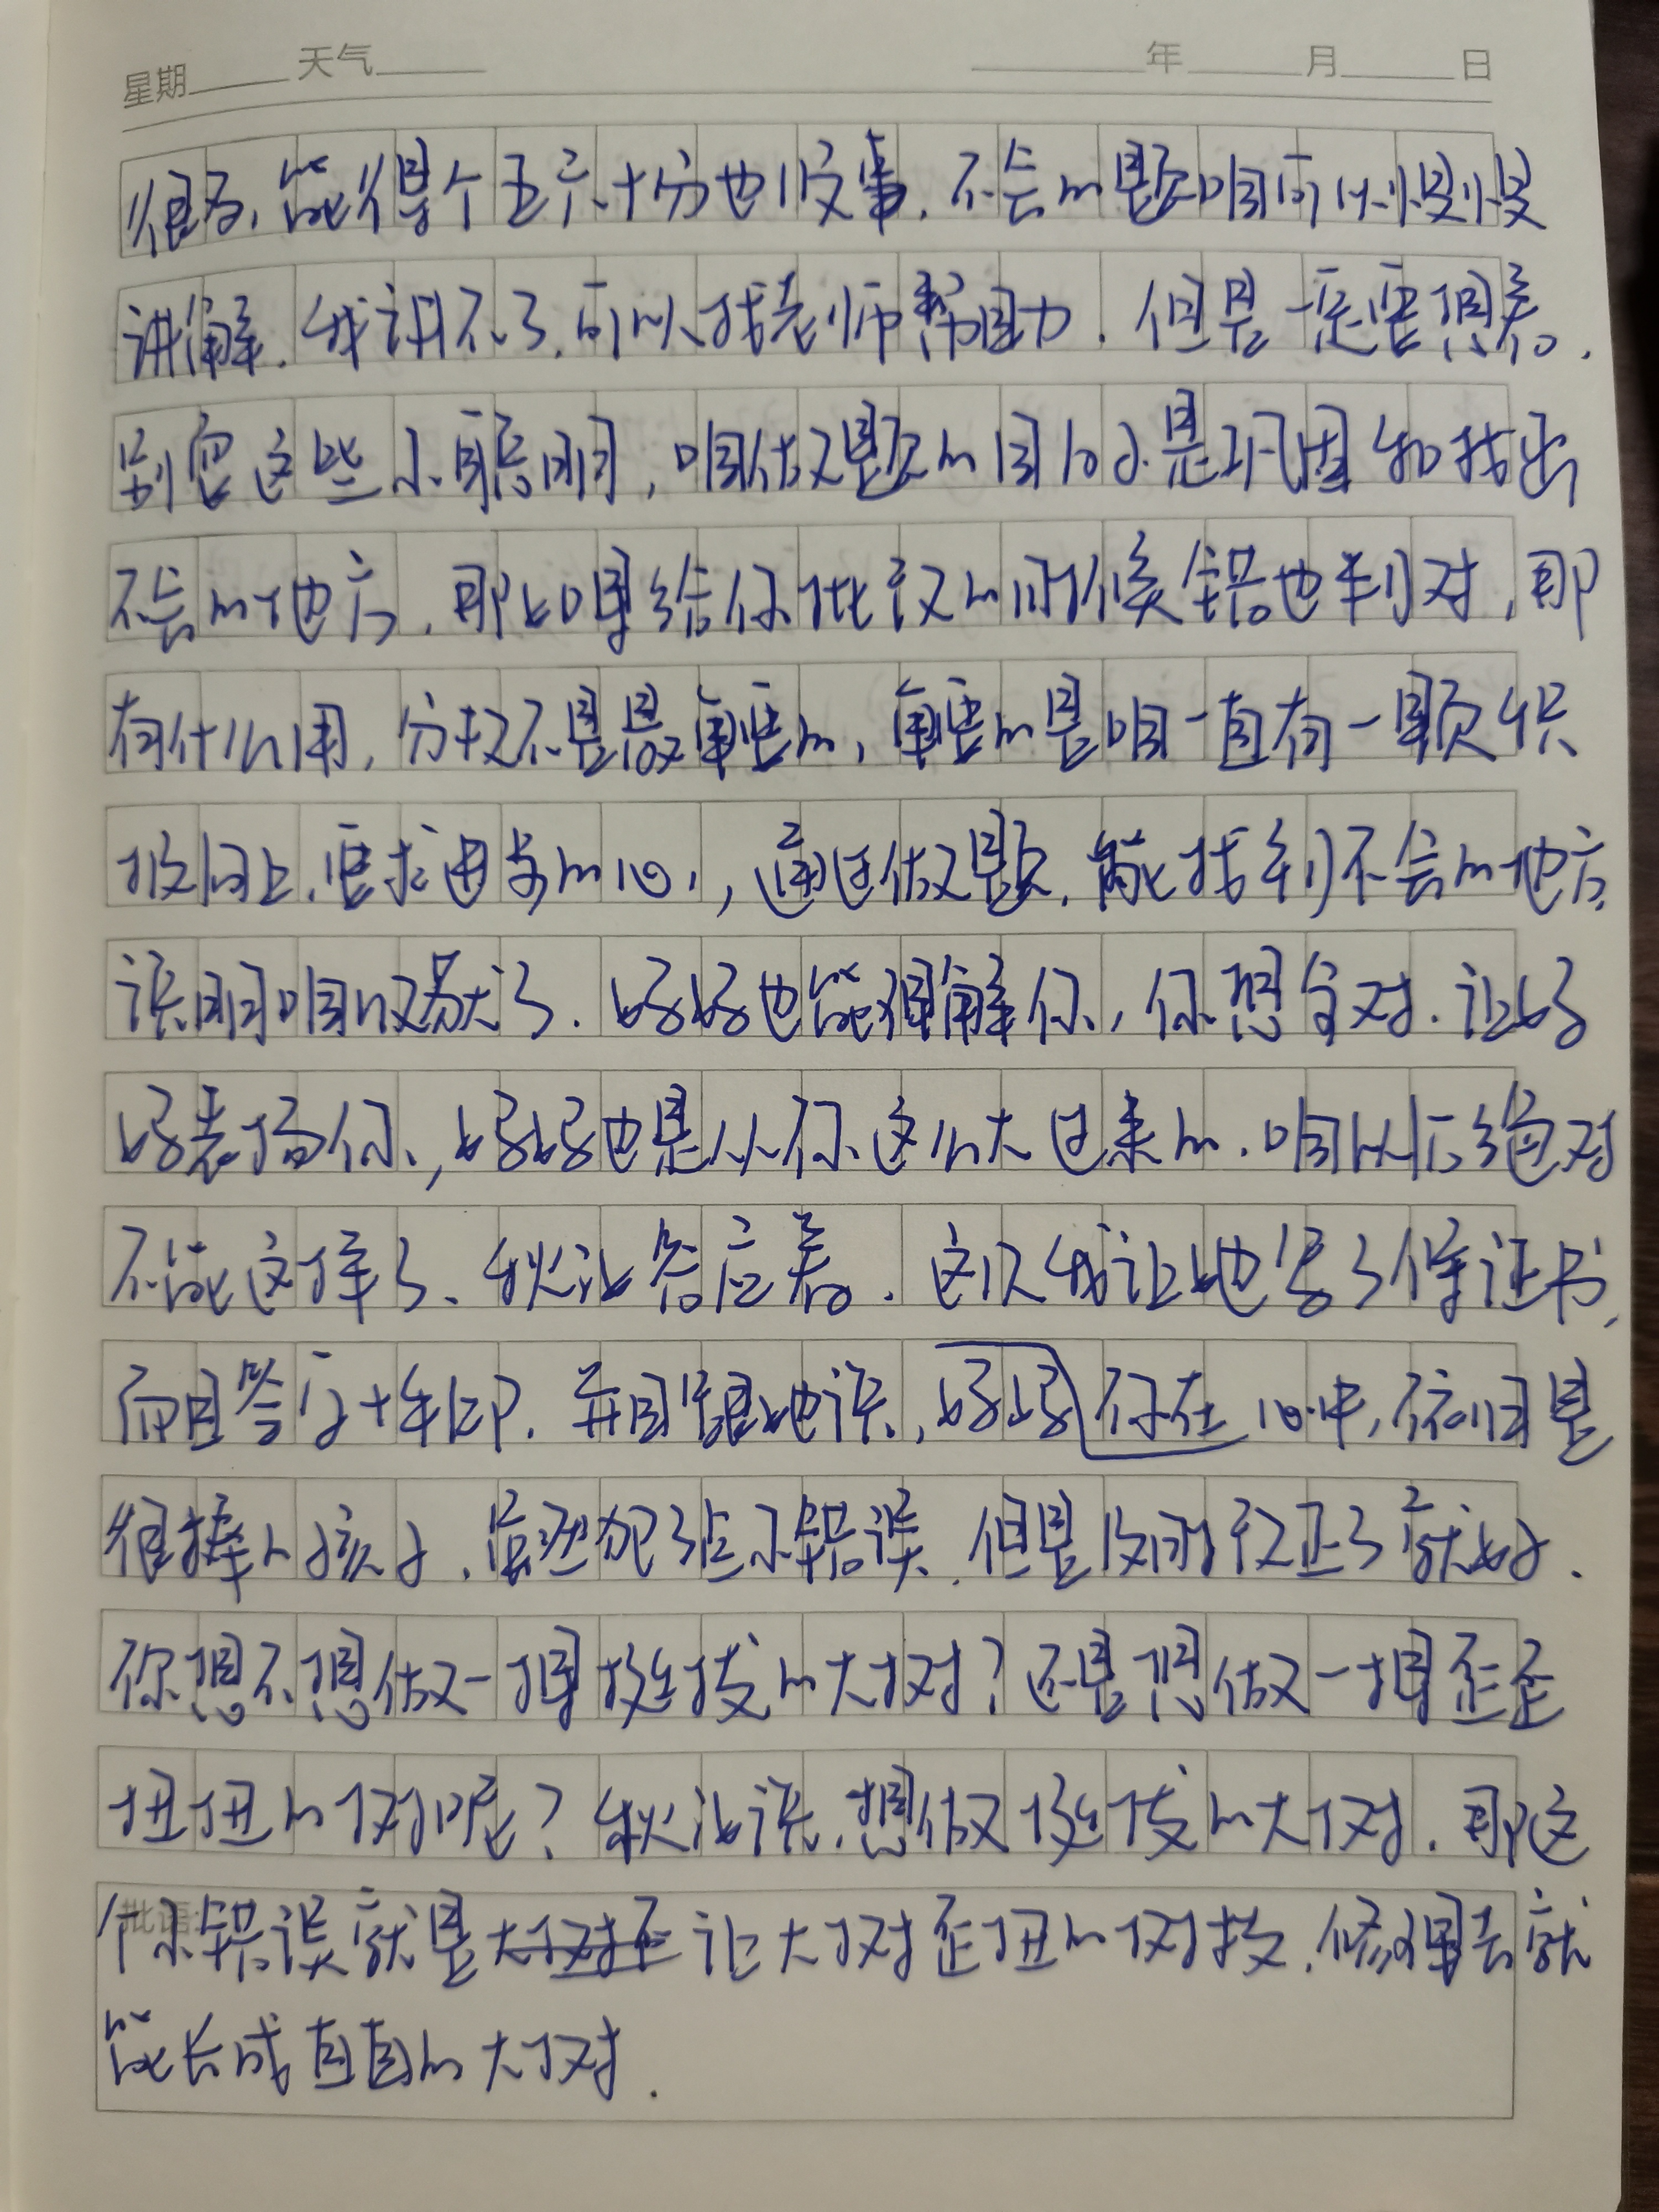 星期 天气 年 月 日
很多，能得个五六十分也没事，不会的题咱可以慢慢
讲解，我讲不了，可以找老师帮助，但是一定要想着，
别耍这些小聪明，咱做题的目的是巩固和找出
不会的地方，那如果给你批改的时候错也判对，那
有什么用，分数不是最重要的，重要的是咱一直有一颗积
极向上，要求进步的心，通过做题，能找到不会的地方
说明咱收获大了，妈妈也能理解你，你想全对，让妈
妈表扬你，妈妈也是从你这么大过来的，咱以后绝对
不能这样了，秋池答应着，这次我让她写了保证书，
而且签字+按印，并且跟她说，妈妈你在心中，依旧是
很棒的孩子，虽然犯了些小错误，但是及时改正了就好，
你想不想做一棵挺拔的大树？还是想做一棵歪歪
扭扭的树呢？秋池说，想做挺拔的大树，那这
个小错误就是让大树歪扭的树枝，修理去就
能长成直直的大树．